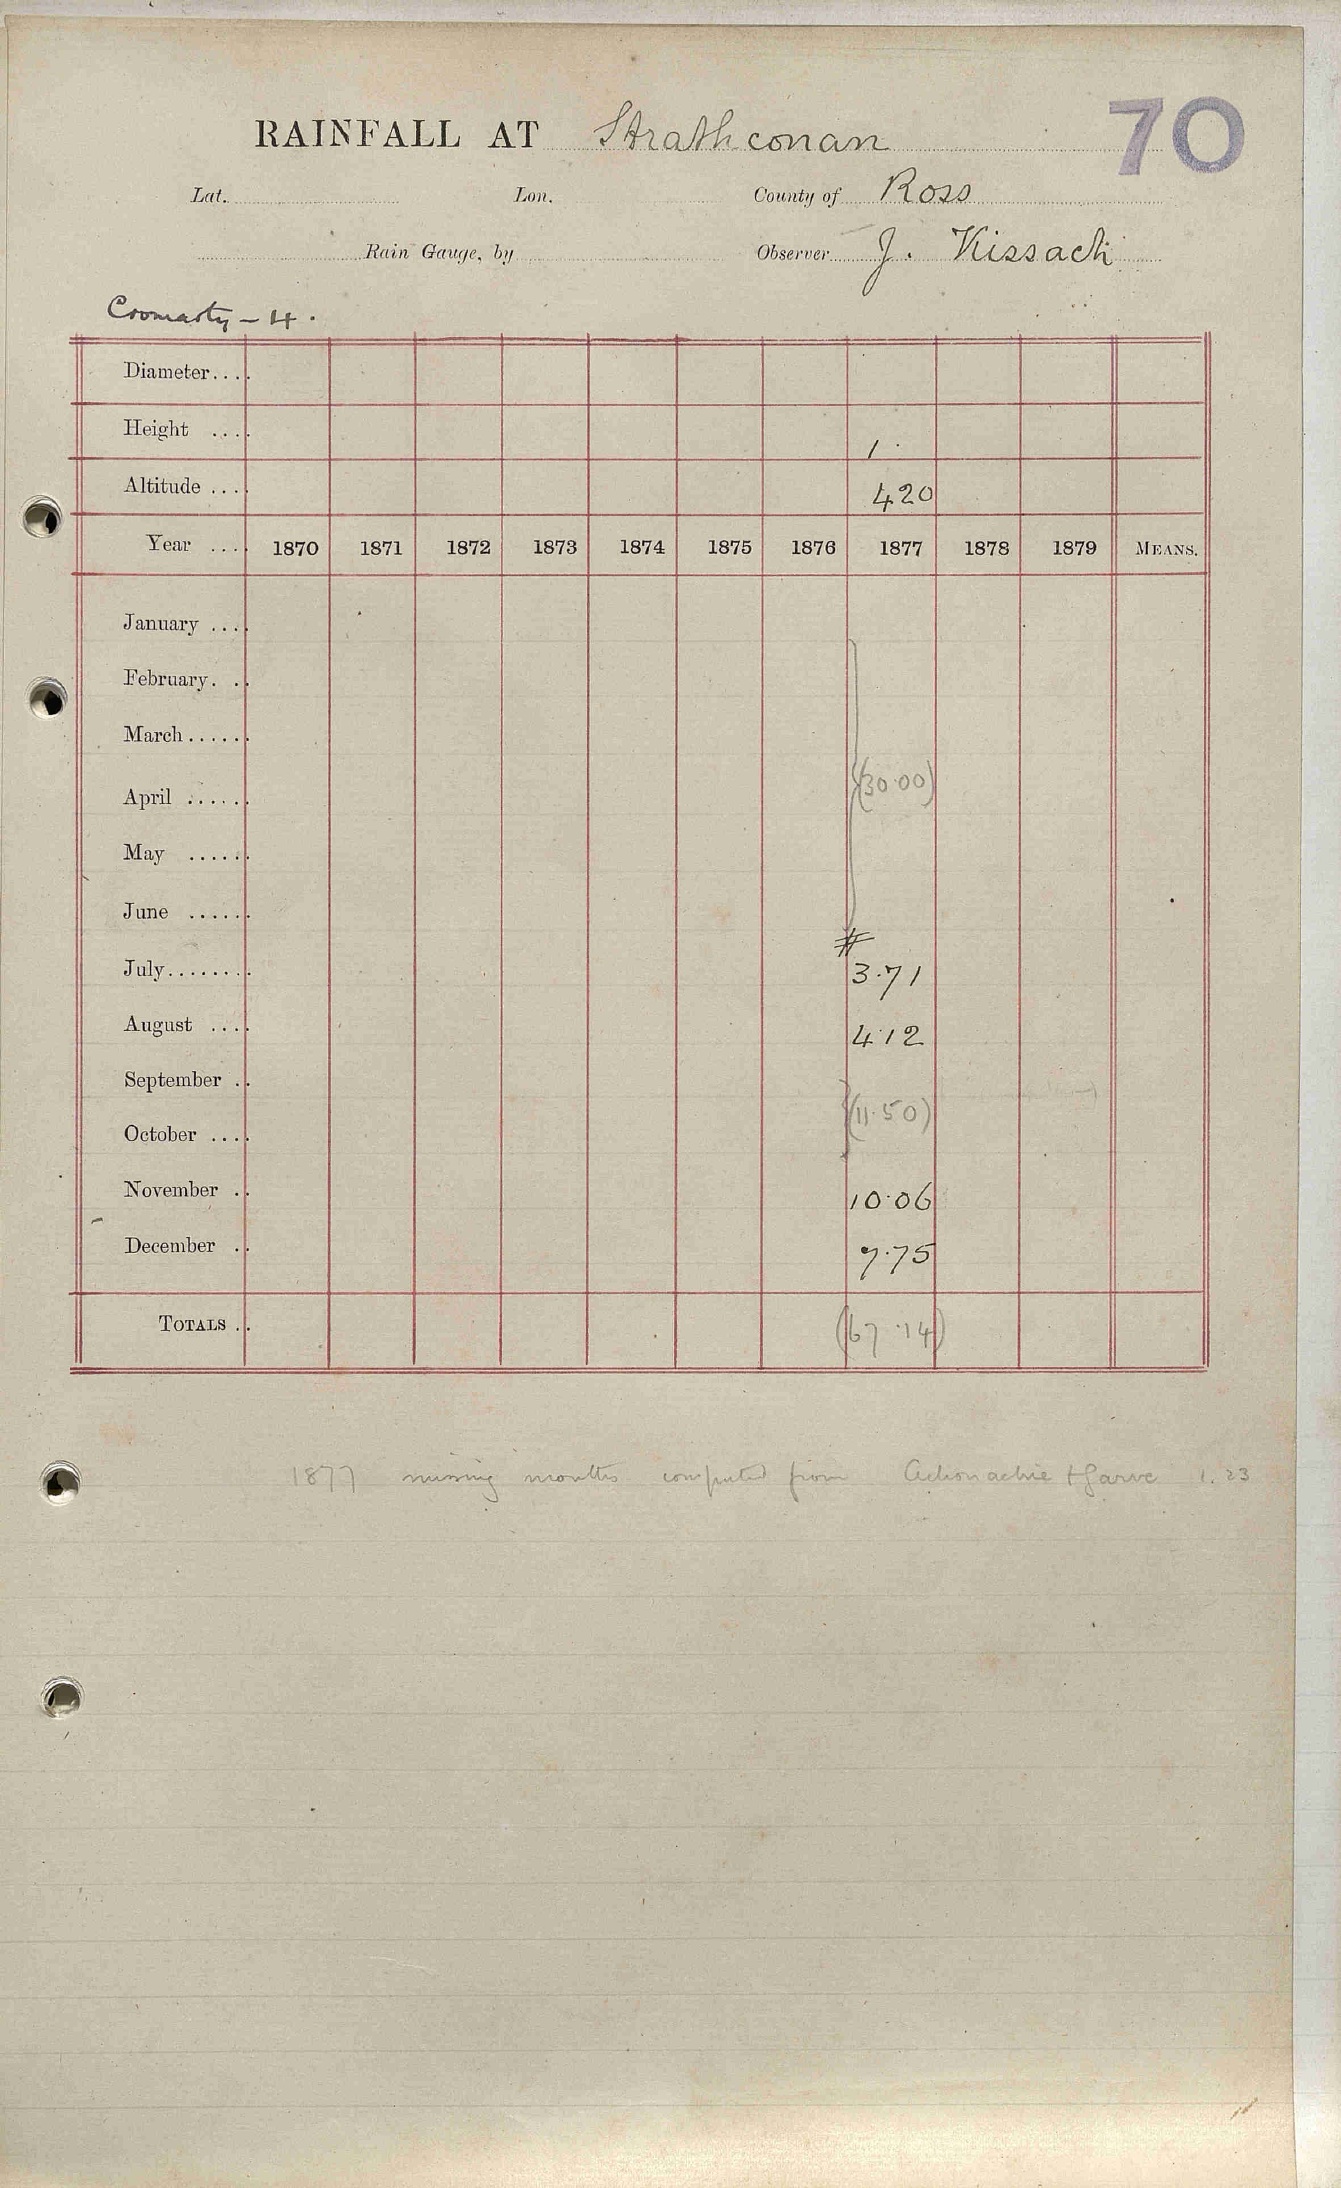 70
RAINFALL AT Strathconan
Lat. Lon. County of Ross
Rain Gauge, by Observer J. Kissach
Cromarty - 4.
Diameter....
Height .... 1.
Altitude .... 420
Year .... 1870 1871 1872 1873 1874 1875 1876 1877 1878 1879 MEANS.
January ....
February. ..
March......
(30.00)
April ......
May ......
June ......
#
July........ 3.71
August .... 4.12
September ..
(11.50)
October ....
November .. 10.06
December .. 7.75
TOTALS .. (67.14)
1877 missing months computed from Achonachie + Garve 1.23